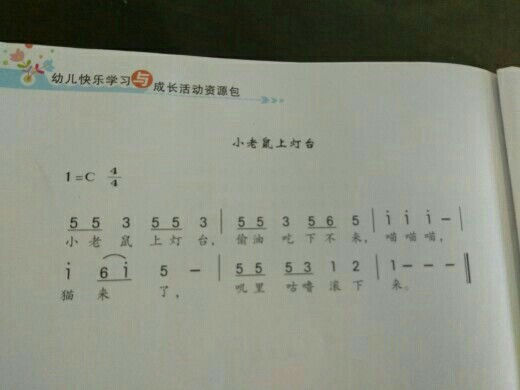 幼儿快乐学习与成长活动资源包
小老鼠上灯台
1=C 4/4
5 5 3 5 5 3 | 5 5 3 5 6 5 | i i i - |
小 老 鼠 上 灯 台, 偷 油 吃 下 不 来, 喵 喵 喵,
i 6 i 5 - | 5 5 5 3 1 2 | 1 - - - ‖
猫 来 了, 叽 里 咕 噜 滚 下 来。